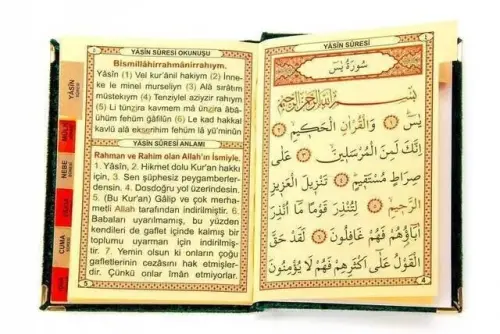 YÂSÎN SÛRESİ OKUNUŞU
Bismillâhirrahmânirrahıym.
Yâsîn (1) Vel kur'ânil hakiym (2) İnne-
ke le minel murseliyn (3) Alâ sırâtım
müstekıym (4) Tenziylel aziyzir rahıym
(5) Li tünzira kavmem mâ ünzira âbâ-
ühüm fehüm gâfilûn (6) Le kad hakkal
kavlü alâ ekserihim fehüm lâ yü'minûn
YÂSÎN SÛRESİ ANLAMI
Rahman ve Rahim olan Allah'ın İsmiyle.
1. Yâsîn, 2. Hikmet dolu Kur'an hakkı
için, 3. Sen şüphesiz peygamberler-
densin. 4. Dosdoğru yol üzerindesin.
5. (Bu Kur'an) Gâlip ve çok merha-
metli Allah tarafından indirilmiştir. 6.
Babaları uyarılmamış, bu yüzden
kendileri de gaflet içinde kalmış bir
toplumu uyarman için indirilmiş-
tir. 7. Yemin olsun ki onların çoğu
gafletlerinin cezasını hak etmişler-
dir. Çünkü onlar îmân etmiyorlar.
5
YÂSÎN
MÜLK
NEBE
CUMA
YÂSÎN SÛRESİ
سُورَةُ يٰسٓ
بِسْمِ اللّٰهِ الرَّحْمٰنِ الرَّحِيمِ
يٰسٓ ﴿١﴾ وَالْقُرْاٰنِ الْحَكِيمِ ﴿٢﴾
اِنَّكَ لَمِنَ الْمُرْسَلِينَ ﴿٣﴾ عَلٰى
صِرَاطٍ مُسْتَقِيمٍ ﴿٤﴾ تَنْزِيلَ الْعَزِيزِ
الرَّحِيمِ ﴿٥﴾ لِتُنْذِرَ قَوْمًا مَٓا اُنْذِرَ
اٰبَٓاؤُ۬هُمْ فَهُمْ غَافِلُونَ ﴿٦﴾ لَقَدْ حَقَّ
الْقَوْلُ عَلٰٓى اَكْثَرِهِمْ فَهُمْ لَا يُؤْمِنُونَ
4